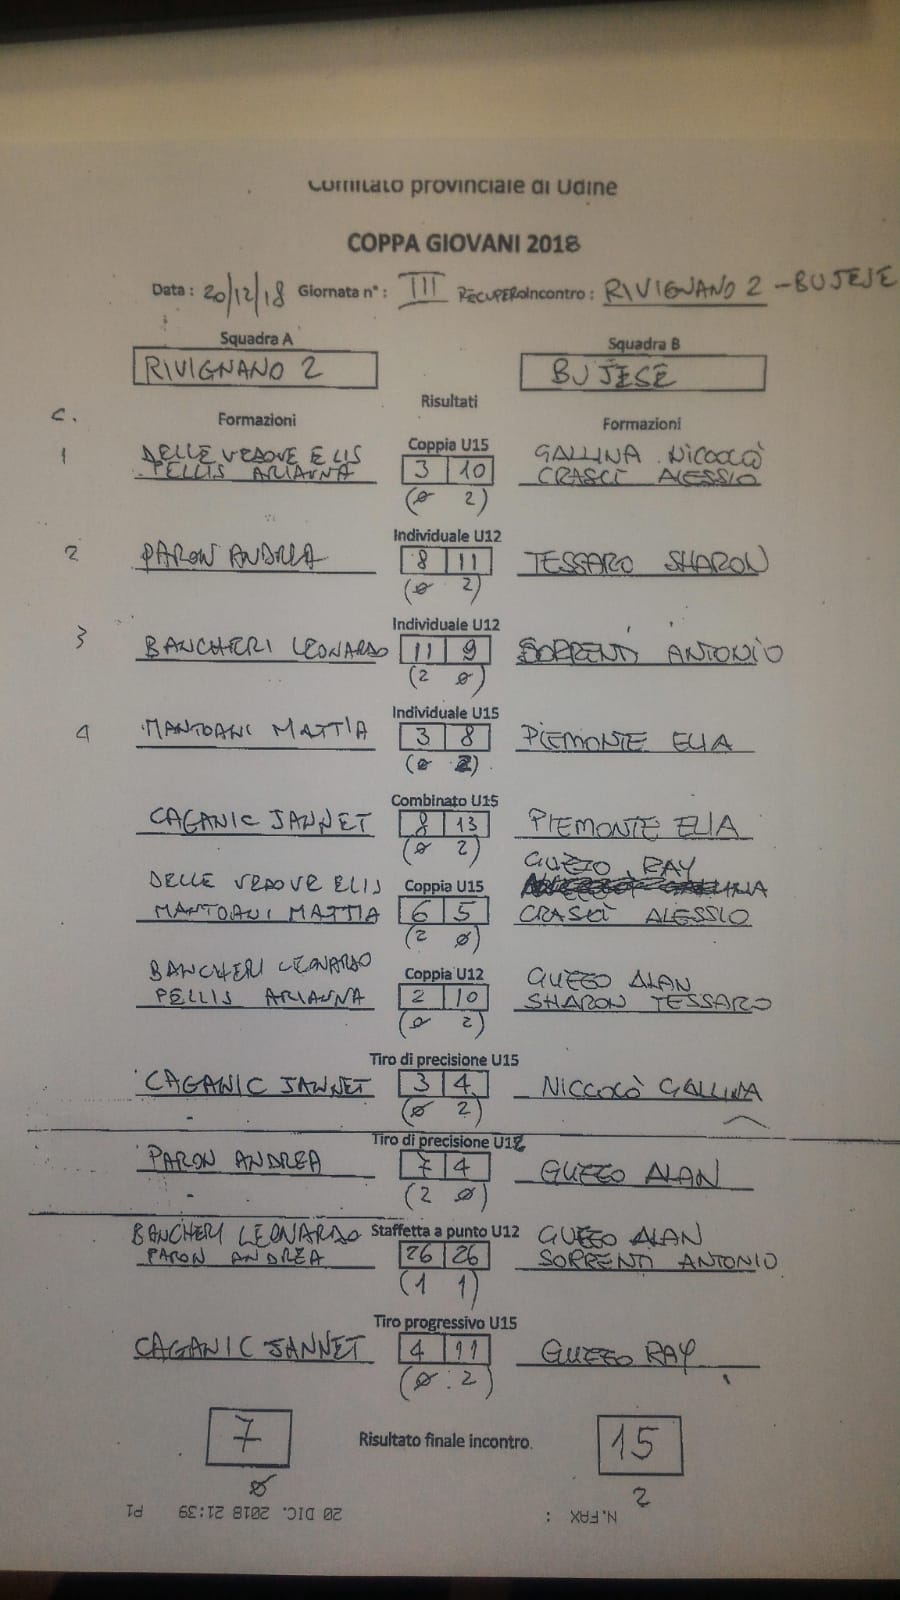 Comitato provinciale di Udine
COPPA GIOVANI 2018
Data : 20/12/18 Giornata n° : III RECUPERO Incontro : RIVIGNANO 2 - BUJESE
Squadra A Squadra B
RIVIGNANO 2 BUJESE
Risultati
C. Formazioni Formazioni
1 DELLE VEDOVE ELIS Coppia U15 GALLINA NICCOLÒ
PELLIS ARIANNA 3 10 CRASCÌ ALESSIO
(0 2)
Individuale U12
2 PARON ANDREA 8 11 TESSARO SHARON
(0 2)
Individuale U12
3 BANCHERI LEONARDO 11 9 SORRENTI ANTONIO
(2 0)
Individuale U15
4 MANTOANI MATTIA 3 8 PIEMONTE ELIA
(0 2)
Combinato U15
CAGANIC JANNET 8 13 PIEMONTE ELIA
(0 2)
DELLE VEDOVE ELIS Coppia U15 GUZZO RAY
MANTOANI MATTIA 6 5 CRASCÌ ALESSIO
(2 0)
BANCHERI LEONARDO Coppia U12 GUZZO ALAN
PELLIS ARIANNA 2 10 SHARON TESSARO
(0 2)
Tiro di precisione U15
CAGANIC JANNET 3 4 NICCOLÒ GALLINA
(0 2)
Tiro di precisione U12
PARON ANDREA 7 4 GUZZO ALAN
(2 0)
BANCHERI LEONARDO Staffetta a punto U12 GUZZO ALAN
PARON ANDREA 26 26 SORRENTI ANTONIO
(1 1)
Tiro progressivo U15
CAGANIC JANNET 4 11 GUZZO RAY
(0 . 2)
7 Risultato finale incontro. 15
0 2
N.FAX : 20 DIC. 2018 21:39 P1